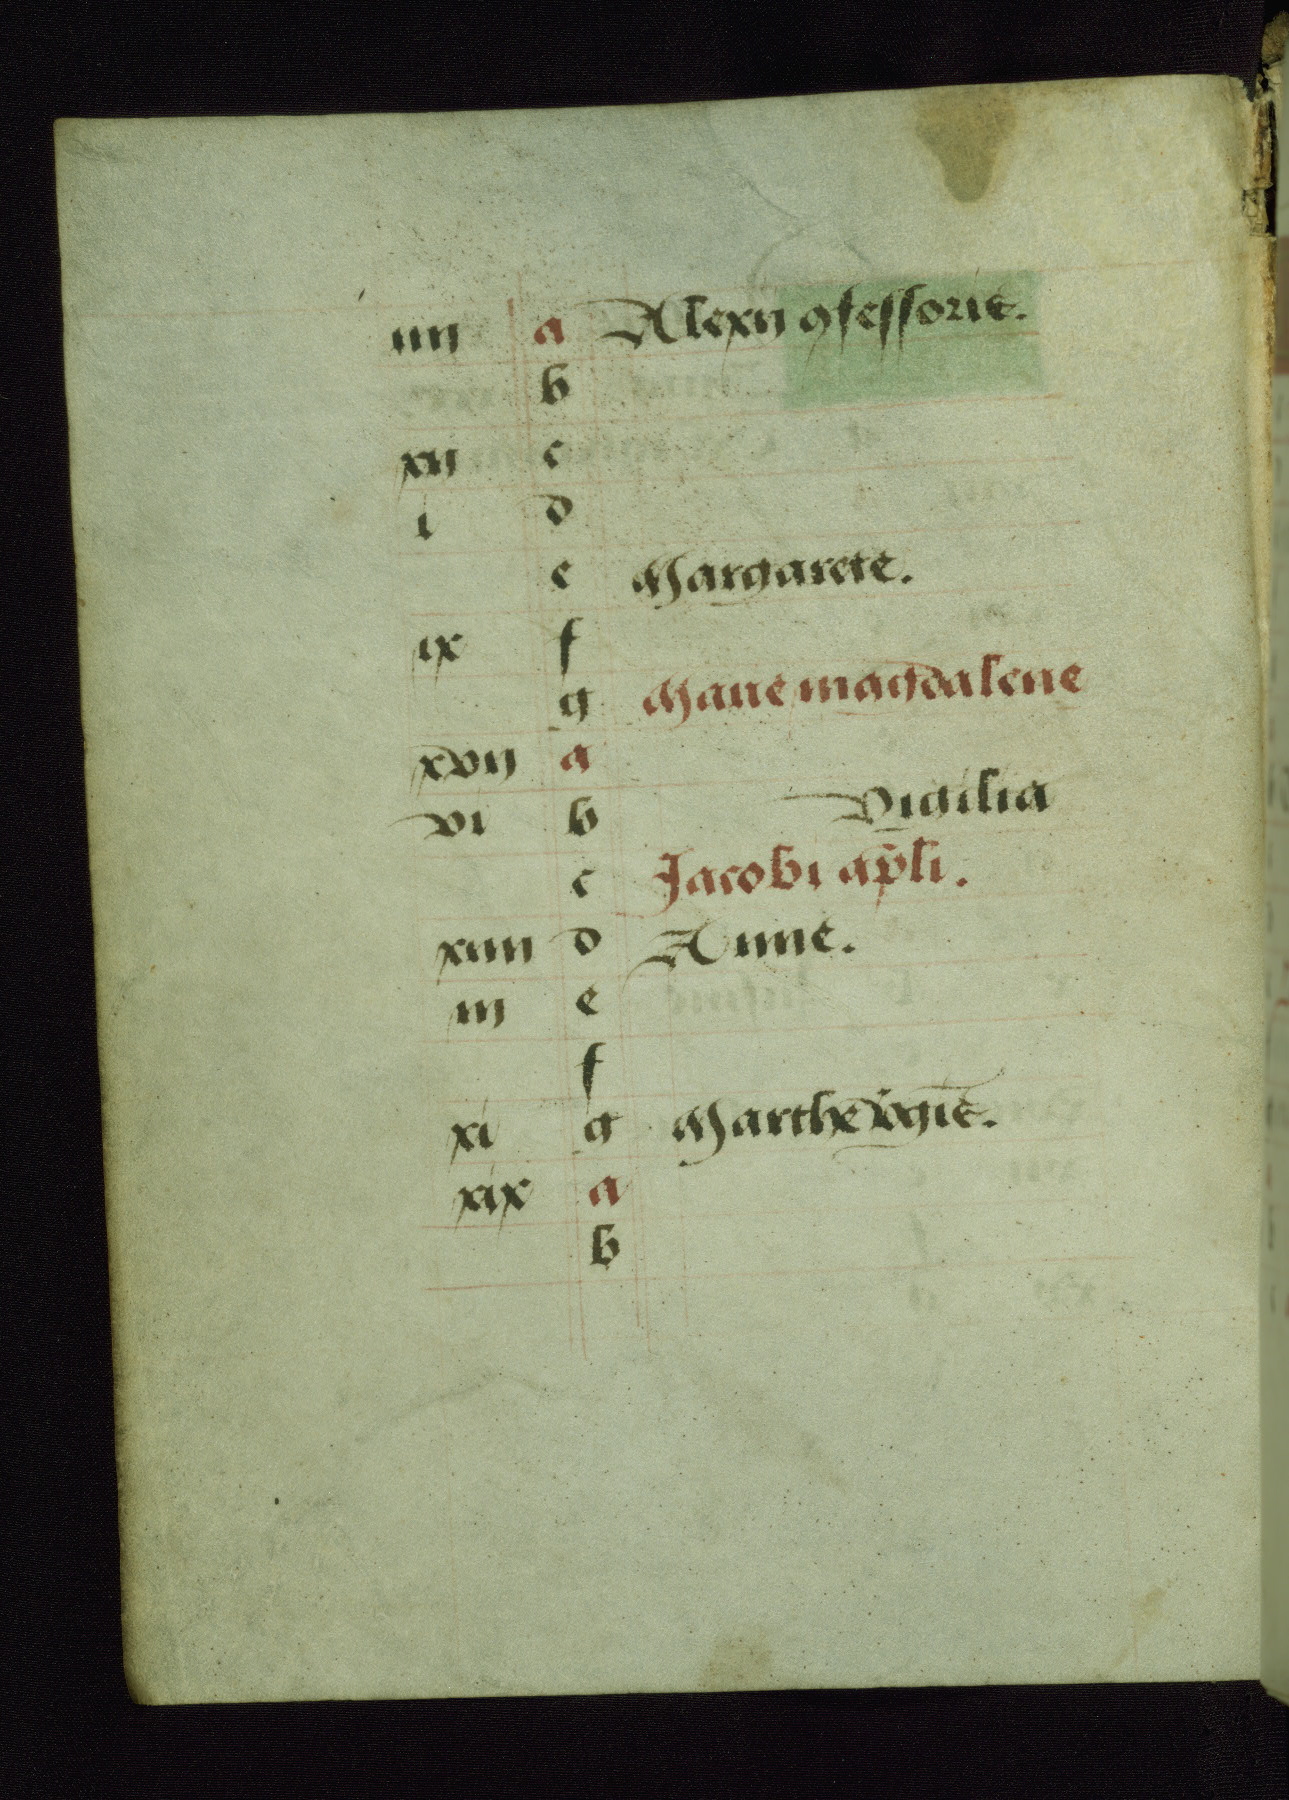 iiij a Alexij ꝯfessoris.
b
xij c
i d
e Margarete.
ix f
g Marie magdalene
xvij a
vi b Vigilia
c Jacobi apl̄i.
xiiij d Anne.
iij e
f
xi g Marthe v̾gīs.
xix a
b